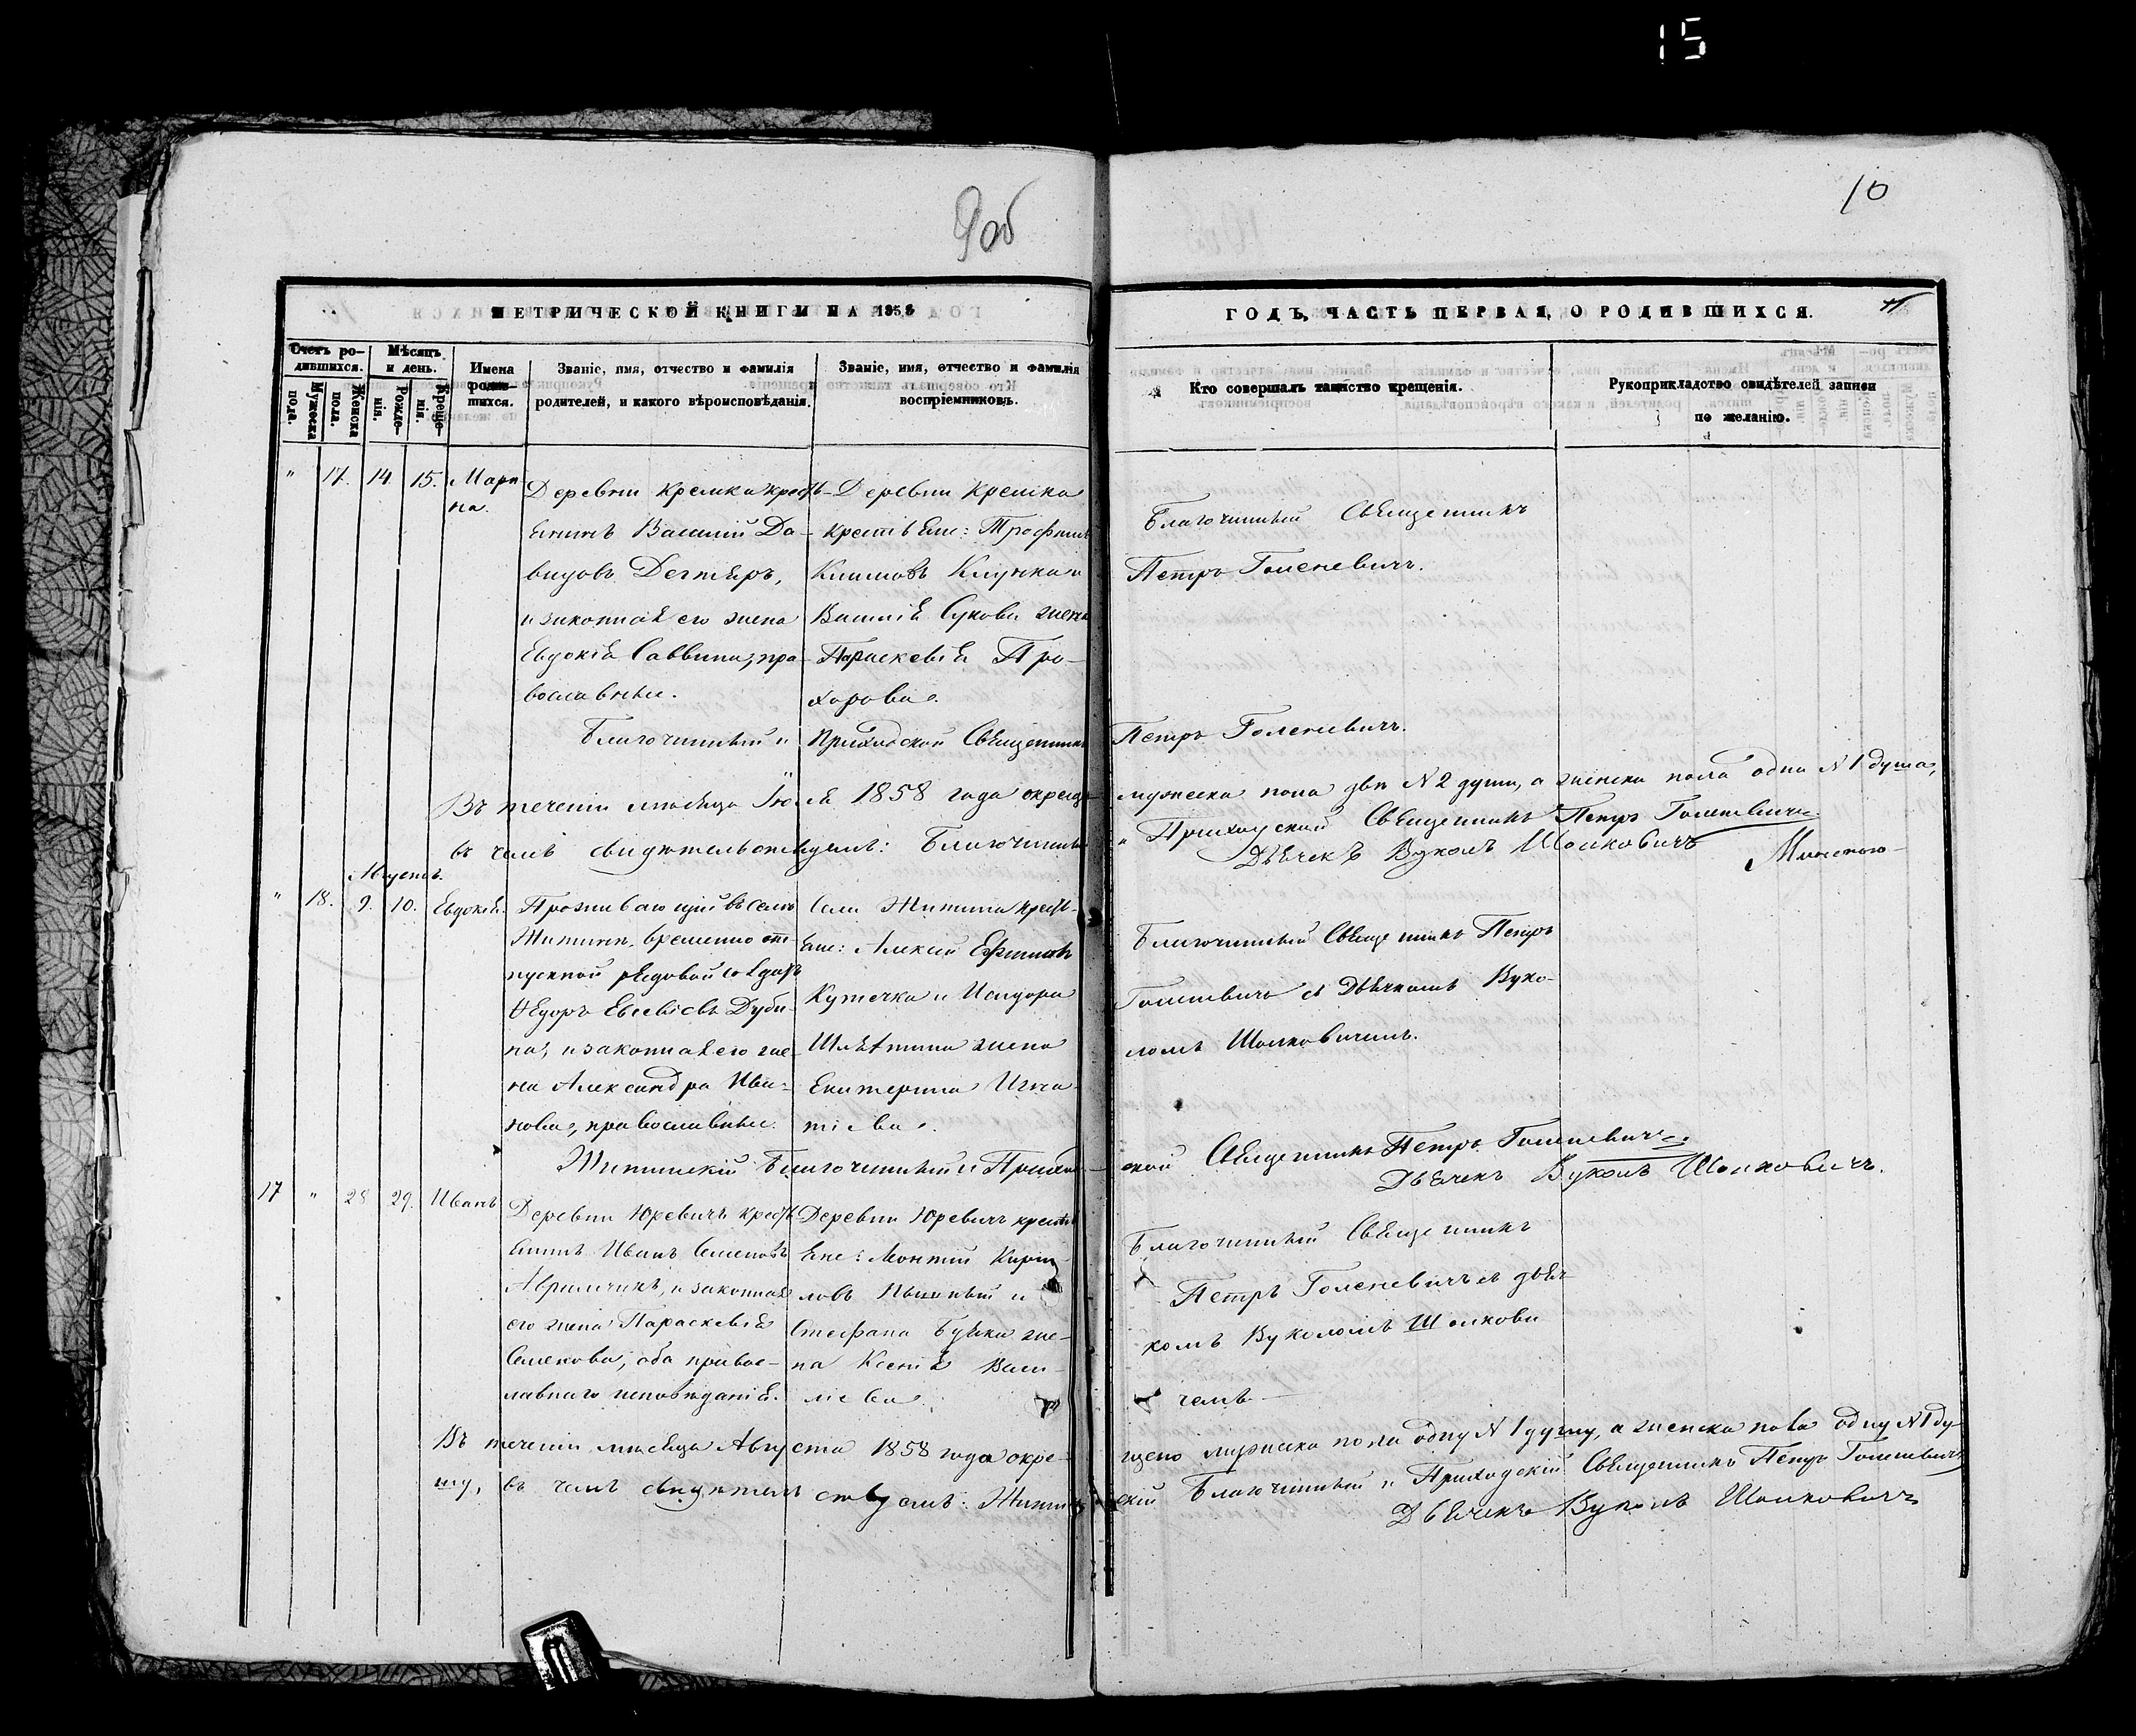 15
9об
10
МЕТРИЧЕСКОЙ КНИГИ НА 1858
ГОДЪ, ЧАСТЬ ПЕРВАЯ, О РОДИВШИХСЯ.
Счетъ родившихся.
Мужеска пола.
Женска пола.
Мѣсяцъ и день.
Рожденія.
Крещенія.
Имена родившихся.
Званіе, имя, отчество и фамилія
родителей, и какого вѣроисповѣданія.
Званіе, имя, отчество и фамилія
воспріемниковъ.
Кто совершалъ таинство крещенія.
Рукоприкладство свидѣтелей записи
по желанію.
" 17. 14. 15. Мари-
на.
Деревни Кремка крестъ-
янинъ Василій Да-
видовъ Дегтяръ,
и законная его жена
Евдокія Саввина, пра-
вославные.
Деревни Кремка
крестьяне: Трофимъ
Климовъ
Василія жена
Параскевія Про-
хорова.
Благочинный Священникъ
Петръ Голеневичъ.
Благочинный и Приходской Священникъ Петръ Голеневичъ.
Въ теченіи мѣсяца Іюля 1858 года окреще
мужеска пола двѣ N 2 души, а женска пола одна N 1 душа,
въ чемъ свидѣтельствуемъ: Благочинный
и Приходской Священникъ Петръ Голеневичъ
Дьячекъ Вуколъ Шолковичъ
Августъ.
" 18. 9. 10. Евдокія.
Проживающій въ селѣ
Житинѣ, временно от-
пускной рядовой солдатъ
Ѳедоръ Евсевіевъ Дуби-
на, и законная его же-
на Александра Ива-
нова, православные.
Села Житина крестъ-
яне: Алексій Ефимовъ
Кутечка и Исидора
жена
Екатерина Игна-
тіева.
Благочинный Священникъ Петръ
Голеневичъ съ Дьячкомъ Вуко-
ломъ Шолковичемъ.
Житинскій Благочинный и Приход-
ской Священникъ Петръ Голеневичъ.
Дьячекъ Вуколъ Шолковичъ.
17 " 28 29. Иванъ
Деревни Юревичъ крестъ-
янинъ Иванъ Семеновъ
Авраменикъ, и законная
его жена Параскевія
Семенова, оба правос-
лавнаго исповѣданія.
Деревни Юревичъ крестъ
яне: Монтій Кири-
ловъ и
Стефана Буяка же-
на Ксенія Васи-
ліева
Благочинный Священникъ
Петръ Голеневичъ съ дьяч-
комъ Вуколомъ Шолкови
чемъ
Въ теченіи мѣсяца Августа 1858 года окре-
щено мужеска пола одну N 1 душу, а женска пола одну N 1 ду
шу, въ чемъ свидѣтельствуемъ: Житин
скій Благочинный и Приходскій Священникъ Петръ Голеневичъ
Дьячекъ Вуколъ Шолковичъ